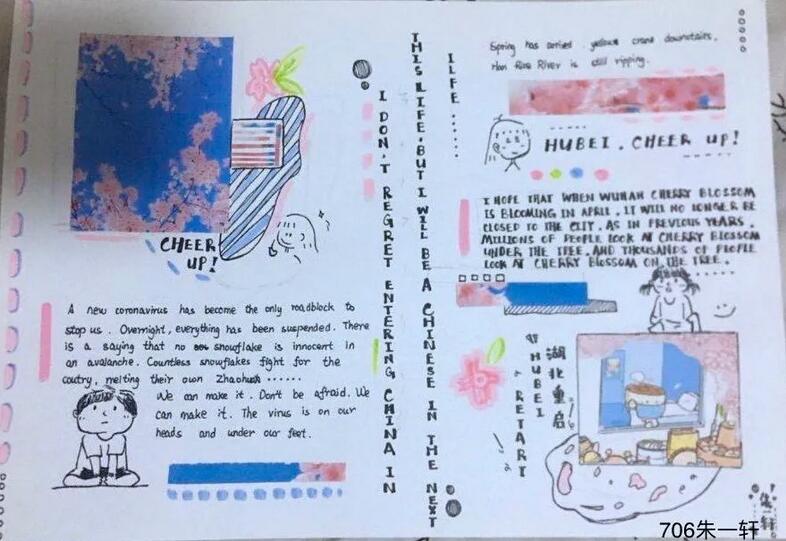 CHEER
UP!
A new coronavirus has become the only roadblock to
stop us. Overnight, everything has been suspended. There
is a saying that no snowflake is innocent in
an avalanche. Countless snowflakes fight for the
coutry, melting their own
We can make it. Don't be afraid. We
can make it. The virus is on our
heads and under our feet.
I DON'T REGRET ENTERING CHINA IN
THIS LIFE, BUT I WILL BE A CHINESE IN THE NEXT
ILFE......
Spring has arrived. yellow crane downstairs.
Han River is still ripping.
HUBEI, CHEER UP!
I HOPE THAT WHEN WUHAN CHERRY BLOSSOM
IS BLOOMING IN APRIL, IT WILL NO LONGER BE
CLOSED TO THE CITY. AS IN PREVIOUS YEARS,
MILLIONS OF PEOPLE LOOK AT CHERRY BLOSSOM
UNDER THE TREE, AND THOUSANDS OF PEOPLE
LOOK AT CHERRY BLOSSOM ON THE TREE.......
HUBEI
RETART
湖北重启
朱一轩
706朱一轩